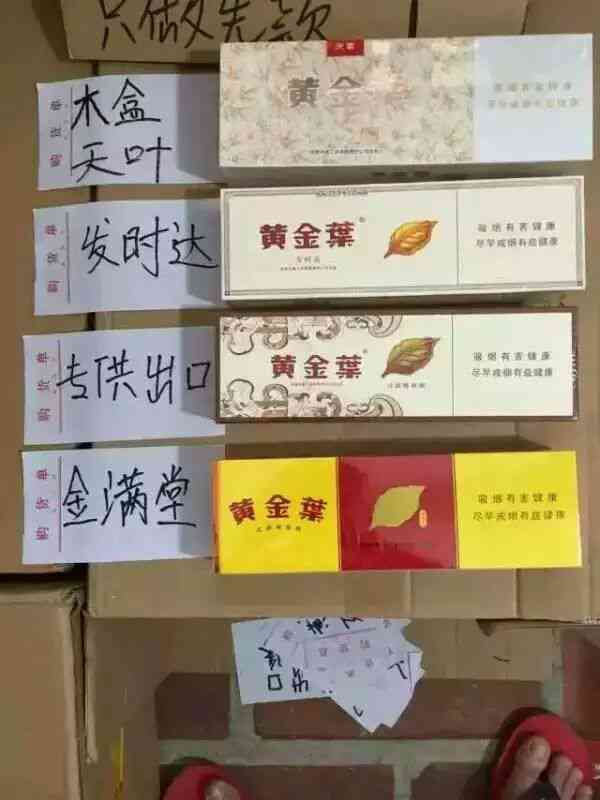 只做先款
购货单
木盒
天叶
天叶
黄金葉
吸烟有害健康
尽早戒烟有益健康
购货单
发时达
黄金葉
吸烟有害健康
尽早戒烟有益健康
购货单
专供出口
黄金葉
吸烟有害健康
尽早戒烟有益健康
购货单
金满堂
黄金葉
吸烟有害健康
尽早戒烟有益健康